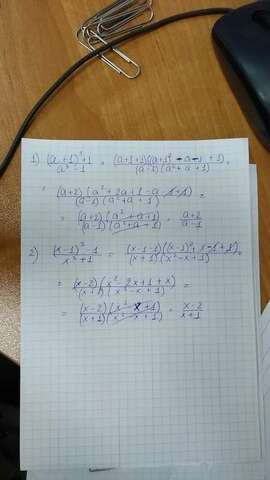 1) ((a+1)³+1)/(a³-1) = ((a+1+1)((a+1)²-a-1+1))/((a-1)(a²+a+1)) =
= ((a+2)(a²+2a+1-a-1+1))/((a-1)(a²+a+1)) =
= ((a+2)(a²+a+1))/((a-1)(a²+a+1)) = (a+2)/(a-1)
2) ((x-1)³-1)/(x³+1) = ((x-1-1)((x-1)²+x-1+1))/((x+1)(x²-x+1)) =
= ((x-2)(x²-2x+1+x))/((x+1)(x²-x+1)) =
= ((x-2)(x²-x+1))/((x+1)(x²-x+1)) = (x-2)/(x+1)